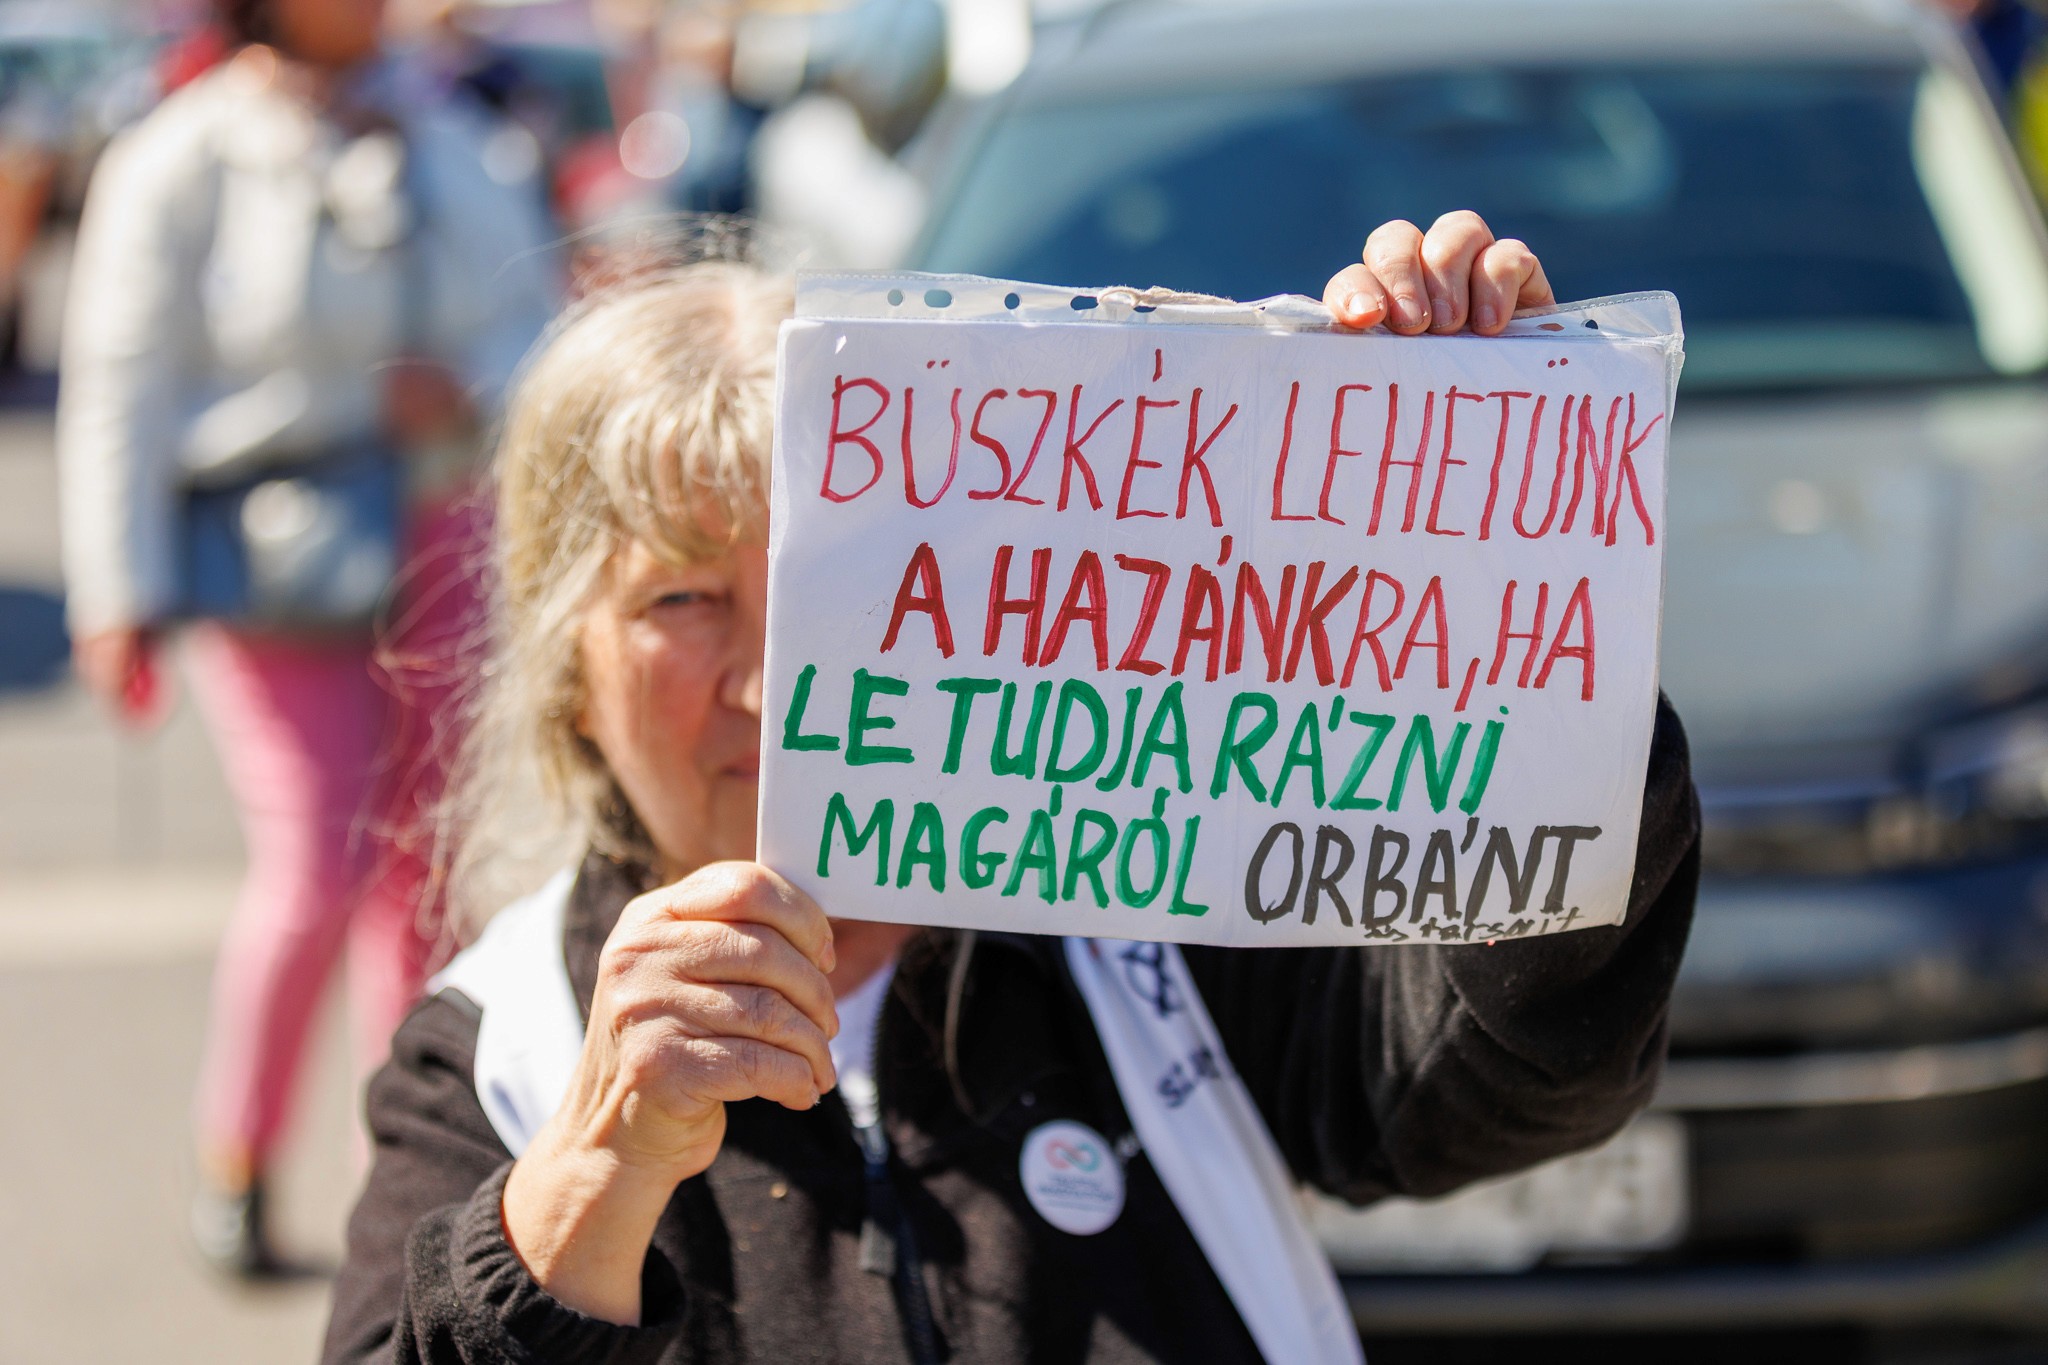 BÜSZKÉK LEHETÜNK
A HAZÁNKRA, HA
LE TUDJA RÁZNI
MAGÁRÓL ORBÁNT
és társait